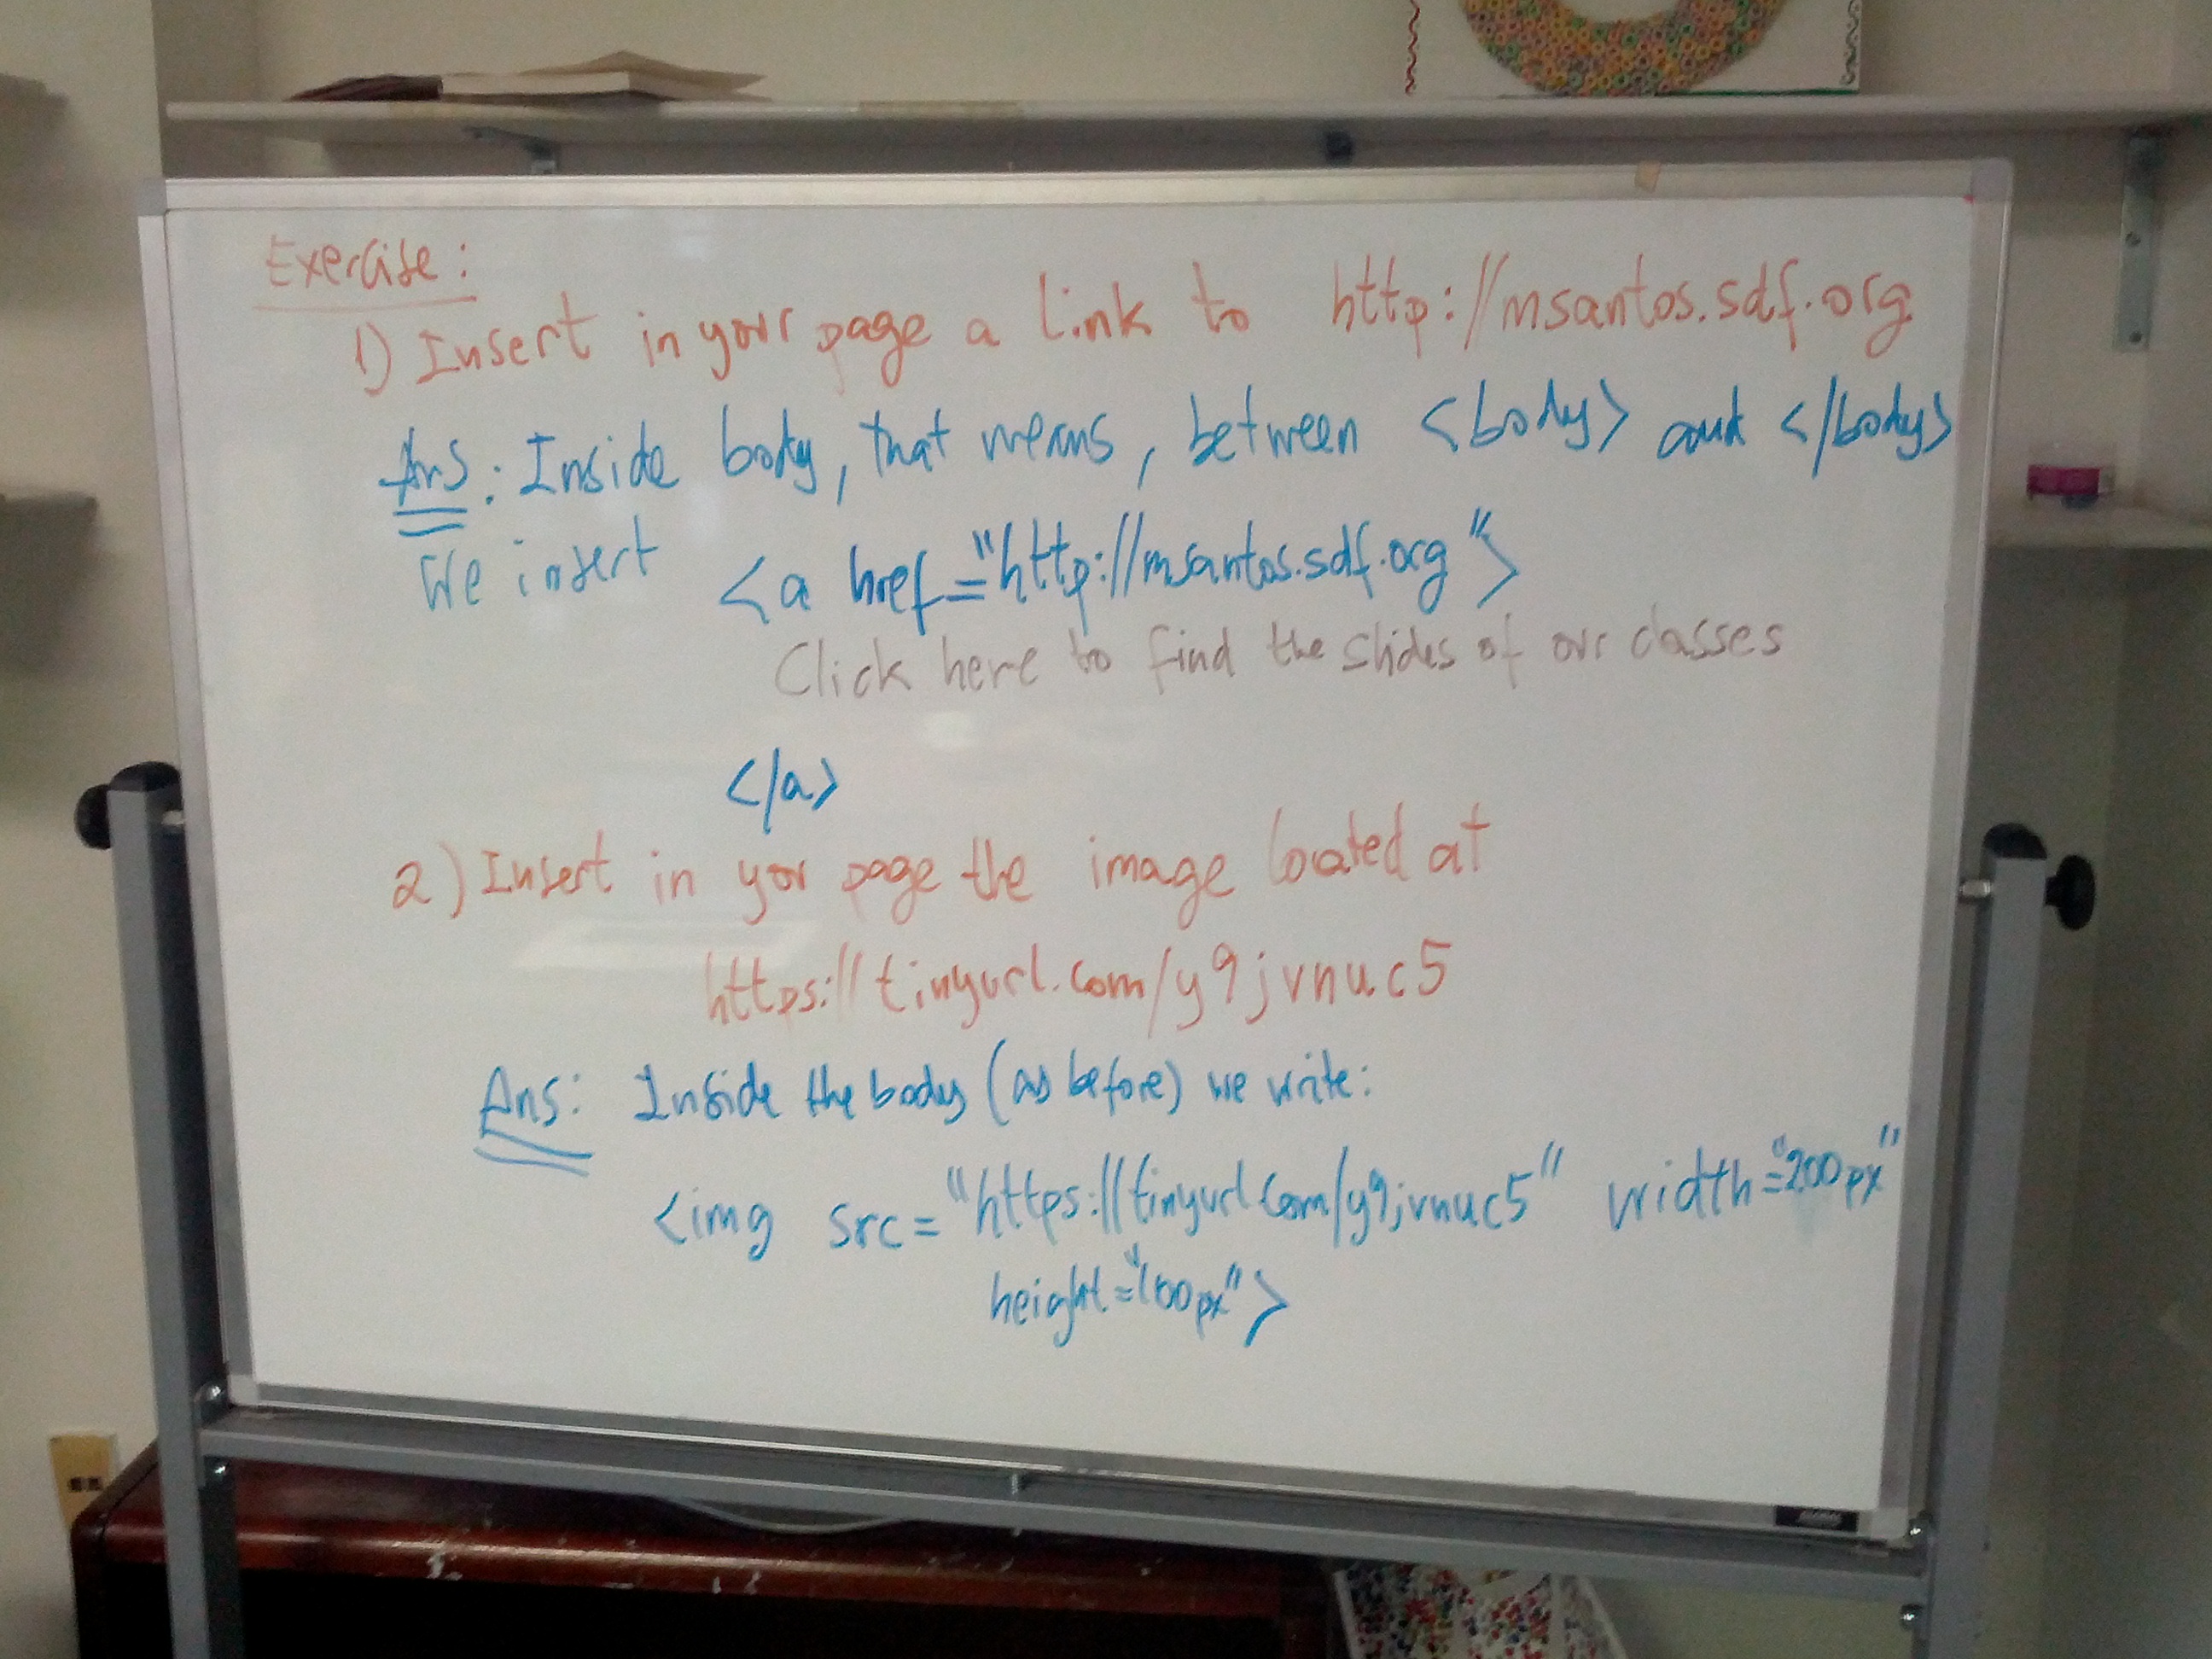 Exercise:
1) Insert in your page a link to http://msantos.sdf.org
Ans: Inside body, that means, between <body> and </body>
We insert <a href="http://msantos.sdf.org">
Click here to find the slides of our classes
</a>
2) Insert in your page the image located at
https://tinyurl.com/y9jvnuc5
Ans: Inside the body (as before) we write:
<img src="https://tinyurl.com/y9jvnuc5" width="200px"
height="100px">